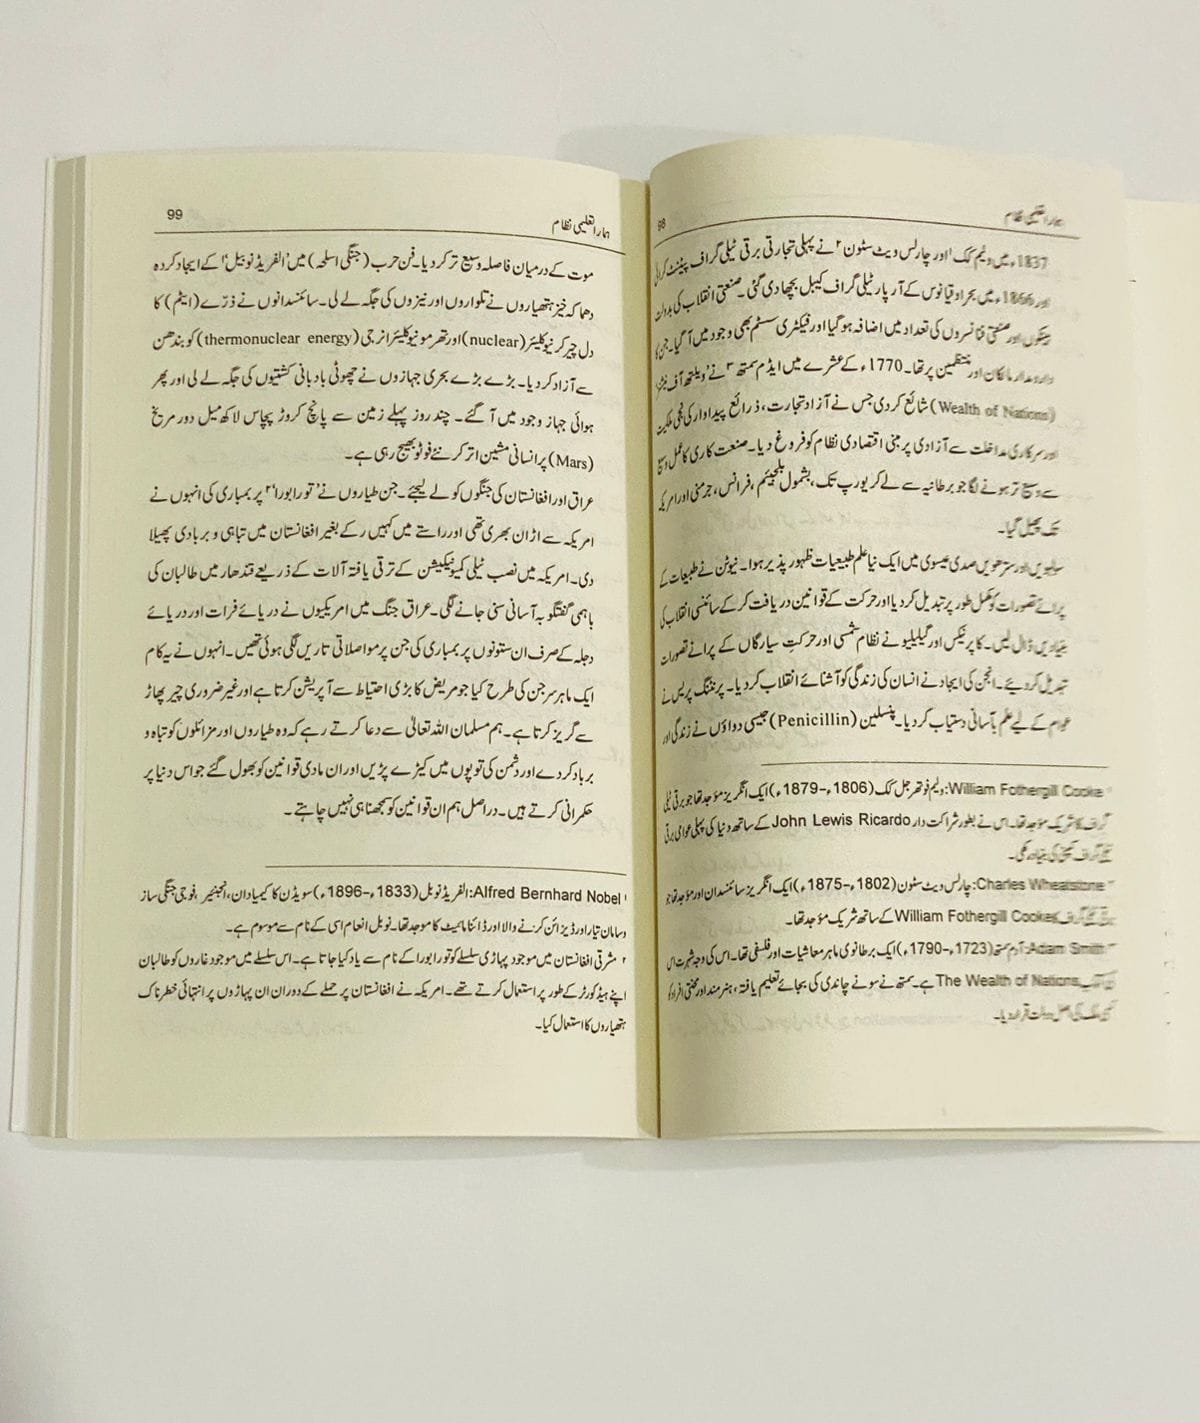 ہمارا تعلیمی نظام
98
1837ء میں ولیم کک ۱ اور چارلس ویٹ سٹون ۲ نے پہلی تجارتی برقی ٹیلی گراف پیٹنٹ کرائی
اور 1866ء میں بحر اوقیانوس کے آر پار ٹیلی گراف کیبل بچھا دی گئی۔ صنعتی انقلاب کی بدولت
بینکوں اور صنعتی فنانسروں کی تعداد میں اضافہ ہو گیا اور فیکٹری سسٹم بھی وجود میں آ گیا۔ جن کا
دارومدار مالکان اور منتظمین پر تھا۔ 1770ء کے عشرے میں ایڈم سمتھ ۳ نے ’ویلتھ آف نیشنز‘
(Wealth of Nations) شائع کر دی جس نے آزاد تجارت، ذرائع پیداوار کی نجی ملکیت
اور سرکاری مداخلت سے آزادی پر مبنی اقتصادی نظام کو فروغ دیا۔ صنعت کاری کا عمل وسیع
سے وسیع تر ہونے لگا جو برطانیہ سے لے کر یورپ تک، بشمول بلجیئم، فرانس، جرمنی اور امریکہ
تک پھیل گیا۔
سولہویں اور سترھویں صدی عیسوی میں ایک نیا علم طبیعیات ظہور پذیر ہوا۔ نیوٹن نے طبیعات کے
پرانے تصورات کو مکمل طور پر تبدیل کر دیا اور حرکت کے قوانین دریافت کر کے سائنسی انقلاب کی
بنیادیں ڈال لیں۔ کاپرنیکس اور گیلیلیو نے نظام شمسی اور حرکتِ سیارگاں کے پرانے تصورات
تبدیل کر دیئے۔ انجن کی ایجاد نے انسان کی زندگی کو آشنائے انقلاب کر دیا۔ پرنٹنگ پریس نے
عوام کے لیے علم بآسانی دستیاب کر دیا۔ پنسلین (Penicillin) جیسی دواؤں نے زندگی اور
۱ William Fothergill Cooke: ولیم فوتھرجل کک (1806ء-1879ء) ایک انگریز مؤجد تھا جو برقی ٹیلی
گراف کا شریک مؤجد تھا۔ اس نے بطور شراکت دار John Lewis Ricardo کے ساتھ دنیا کی پہلی عوامی برقی
ٹیلی گراف کمپنی کی بنیاد رکھی۔
۲ Charles Wheatstone: چارلس ویٹ سٹون (1802ء-1875ء) ایک انگریز سائنسدان اور مؤجد تھا جو
برقی ٹیلی گراف کا William Fothergill Cooke کے ساتھ شریک مؤجد تھا۔
۳ Adam Smith: آدم سمتھ (1723ء-1790ء) ایک برطانوی ماہر معاشیات اور فلسفی تھا۔ اس کی وجہ شہرت اس
کی کتاب The Wealth of Nations ہے۔ سمتھ نے سونے چاندی کی بجائے تعلیم یافتہ، ہنرمند اور محنتی افراد کو
کسی ملک کی اصل دولت قرار دیا۔
ہمارا تعلیمی نظام
99
موت کے درمیان فاصلہ وسیع تر کر دیا۔ فن حرب (جنگی اسلحہ) میں ’الفریڈ نوبیل‘ ۱ کے ایجاد کردہ
دھماکہ خیز ہتھیاروں نے تلواروں اور نیزوں کی جگہ لے لی۔ سائنسدانوں نے ذرّے (ایٹم) کا
دل چیر کر نیوکلیئر (nuclear) اور تھرمونیوکلیئر انرجی (thermonuclear energy) کو بندھن
سے آزاد کر دیا۔ بڑے بڑے بحری جہازوں نے چھوٹی بادبانی کشتیوں کی جگہ لے لی اور پھر
ہوائی جہاز وجود میں آ گئے۔ چند روز پہلے زمین سے پانچ کروڑ پچاس لاکھ میل دور مریخ
(Mars) پر انسانی مشین اتر کر نئے فوٹو بھیج رہی ہے۔
عراق اور افغانستان کی جنگوں کو لے لیجئے۔ جن طیاروں نے ’تورا بورا‘ ۲ پر بمباری کی انہوں نے
امریکہ سے اڑان بھری تھی اور راستے میں کہیں رکے بغیر افغانستان میں تباہی و بربادی پھیلا
دی۔ امریکہ میں نصب ٹیلی کمیونیکیشن کے ترقی یافتہ آلات کے ذریعے قندھار میں طالبان کی
باہمی گفتگو بہ آسانی سنی جانے لگی۔ عراق جنگ میں امریکیوں نے دریائے فرات اور دریائے
دجلہ کے صرف ان ستونوں پر بمباری کی جن پر مواصلاتی تاریں لگی ہوئی تھیں۔ انہوں نے یہ کام
ایک ماہر سرجن کی طرح کیا جو مریض کا بڑی احتیاط سے آپریشن کرتا ہے اور غیر ضروری چیر پھاڑ
سے گریز کرتا ہے۔ ہم مسلمان اللہ تعالیٰ سے دعا کرتے رہے کہ وہ طیاروں اور مزائلوں کو تباہ و
برباد کر دے اور دشمن کی توپوں میں کیڑے پڑیں اور ان مادی قوانین کو بھول گئے جو اس دنیا پر
حکمرانی کرتے ہیں۔ دراصل ہم ان قوانین کو سمجھنا ہی نہیں چاہتے۔
۱ Alfred Bernhard Nobel: الفریڈ نوبل (1833ء-1896ء) سویڈن کا کیمیا دان، انجنئیر، فوجی جنگی ساز
و سامان تیار اور ڈیزائن کرنے والا اور ڈائنامائیٹ کا موجد تھا۔ نوبل انعام اسی کے نام سے موسوم ہے۔
۲ مشرقی افغانستان میں موجود پہاڑی سلسلے کو تورا بورا کے نام سے یاد کیا جاتا ہے۔ اس سلسلے میں موجود غاروں کو طالبان
اپنے ہیڈ کورٹر کے طور پر استعمال کرتے تھے۔ امریکہ نے افغانستان پر حملے کے دوران ان پہاڑوں پر انتہائی خطرناک
ہتھیاروں کا استعمال کیا۔